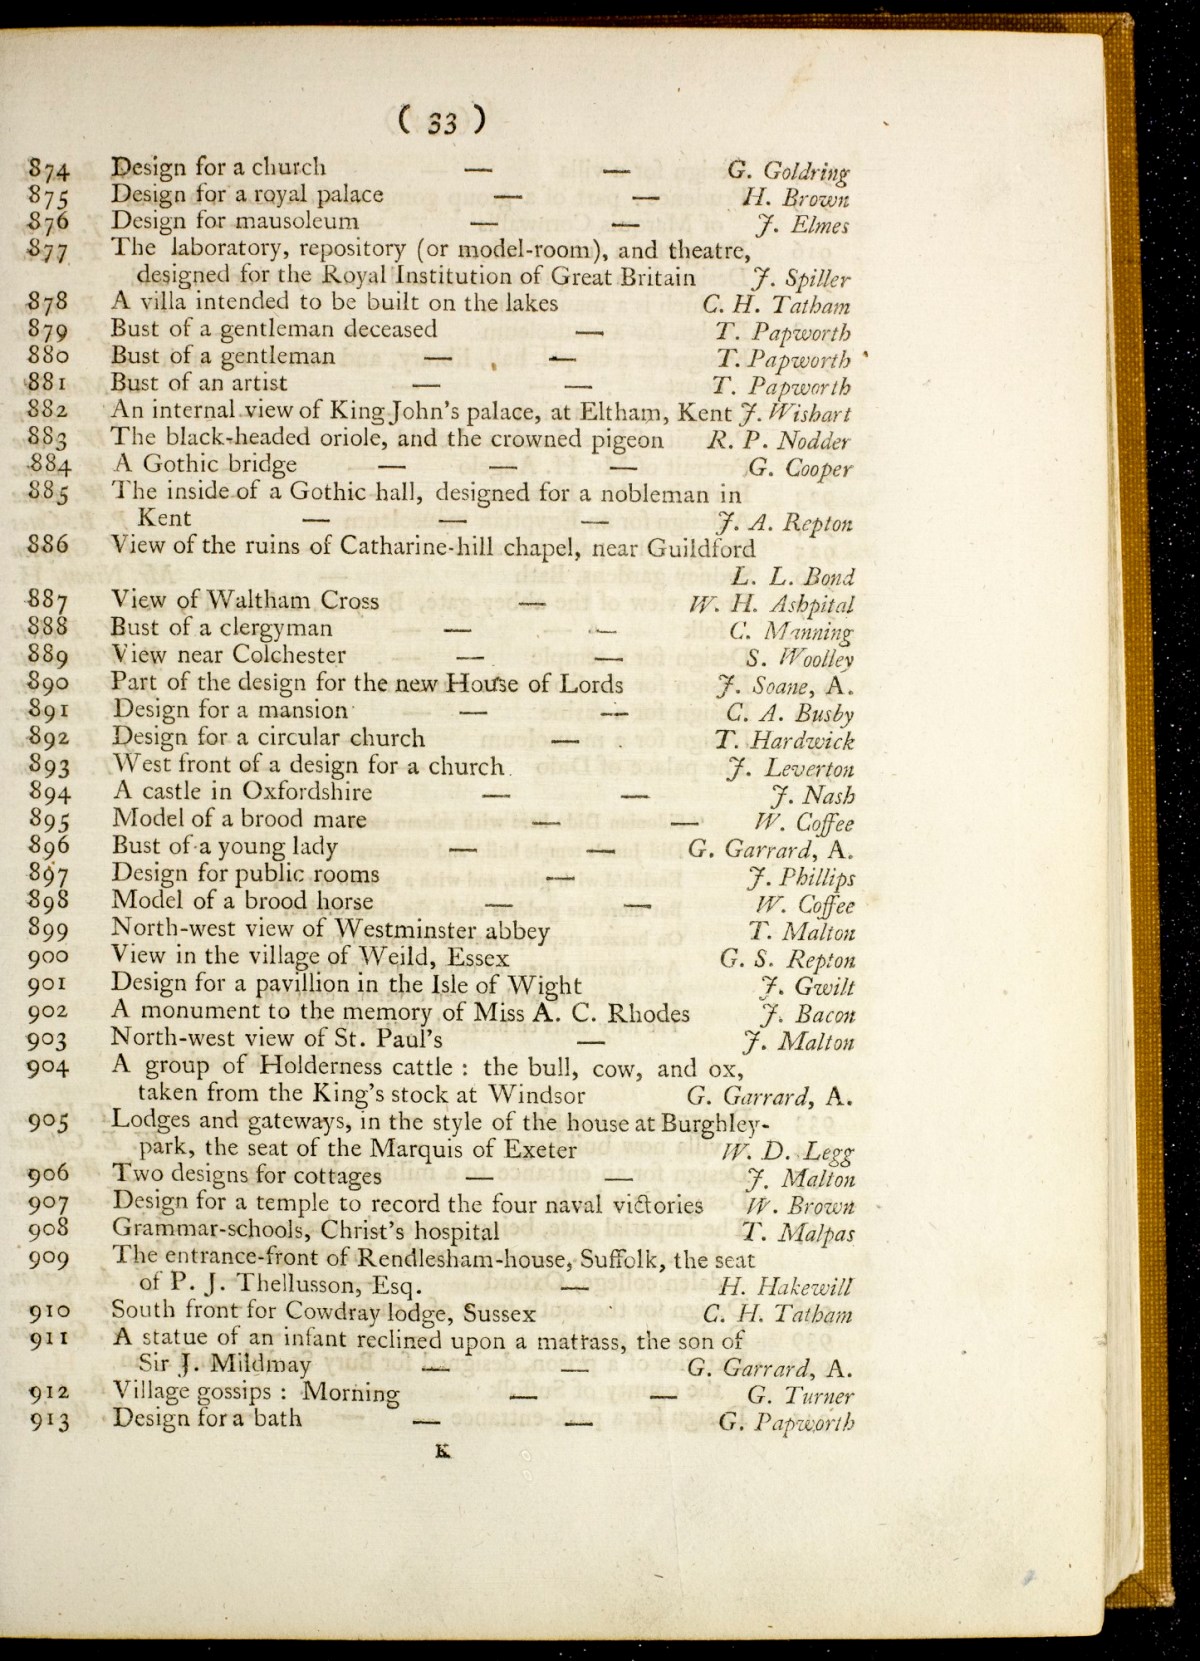 ( 33 )
874 Design for a church — — G. Goldring
875 Design for a royal palace — — H. Brown
876 Design for mausoleum — — J. Elmes
877 The laboratory, repository (or model-room), and theatre,
designed for the Royal Institution of Great Britain J. Spiller
878 A villa intended to be built on the lakes C. H. Tatham
879 Bust of a gentleman deceased — T. Papworth
880 Bust of a gentleman — — T. Papworth
881 Bust of an artist — — T. Papworth
882 An internal view of King John's palace, at Eltham, Kent J. Wishart
883 The black-headed oriole, and the crowned pigeon R. P. Nodder
884 A Gothic bridge — — — G. Cooper
885 The inside of a Gothic hall, designed for a nobleman in
Kent — — — J. A. Repton
886 View of the ruins of Catharine-hill chapel, near Guildford
L. L. Bond
887 View of Waltham Cross — W. H. Ashpital
888 Bust of a clergyman — — C. Manning
889 View near Colchester — — S. Woolley
890 Part of the design for the new House of Lords J. Soane, A.
891 Design for a mansion — — C. A. Busby
892 Design for a circular church — T. Hardwick
893 West front of a design for a church J. Leverton
894 A castle in Oxfordshire — — J. Nash
895 Model of a brood mare — — W. Coffee
896 Bust of a young lady — — G. Garrard, A.
897 Design for public rooms — J. Phillips
898 Model of a brood horse — — W. Coffee
899 North-west view of Westminster abbey T. Malton
900 View in the village of Weild, Essex G. S. Repton
901 Design for a pavillion in the Isle of Wight J. Gwilt
902 A monument to the memory of Miss A. C. Rhodes J. Bacon
903 North-west view of St. Paul's — J. Malton
904 A group of Holderness cattle : the bull, cow, and ox,
taken from the King's stock at Windsor G. Garrard, A.
905 Lodges and gateways, in the style of the house at Burghley-
park, the seat of the Marquis of Exeter W. D. Legg
906 Two designs for cottages — — J. Malton
907 Design for a temple to record the four naval victories W. Brown
908 Grammar-schools, Christ's hospital T. Malpas
909 The entrance-front of Rendlesham-house, Suffolk, the seat
of P. J. Thellusson, Esq. — H. Hakewill
910 South front for Cowdray lodge, Sussex C. H. Tatham
911 A statue of an infant reclined upon a mattrass, the son of
Sir J. Mildmay — — G. Garrard, A.
912 Village gossips : Morning — — G. Turner
913 Design for a bath — — G. Papworth
K